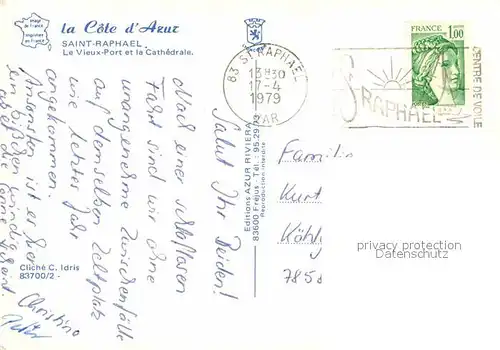 la Côte d'Azur
SAINT-RAPHAEL
Le Vieux-Port et la Cathédrale.
image de France
imprimée en France
Salut Ihr Beiden!
Nach einer schlaflosen
Fahrt sind wir ohne
unangenehme Zwischenfälle
auf demselben Zeltplatz
wie letztes Jahr
angekommen.
Ansonsten ist es hier
ein bißchen windig
aber die Sonne scheint.
Christine
Peter
Cliché C. Idris
83700/2 -
Editions AZUR RIVIERA
83600 Fréjus - Tél.: 95.29
Reproduction interdite
83 ST RAPHAEL
13H30
17-4
1979
VAR
ST RAPHAEL
CENTRE DE VOILE
FRANCE
1,00
Familie
Kurt
Köhl
7858
privacy protection
Datenschutz